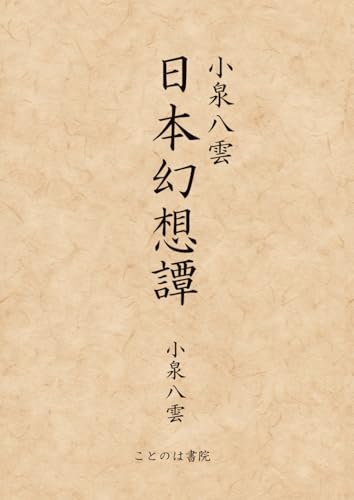 小泉八雲
日本幻想譚
小泉八雲
ことのは書院